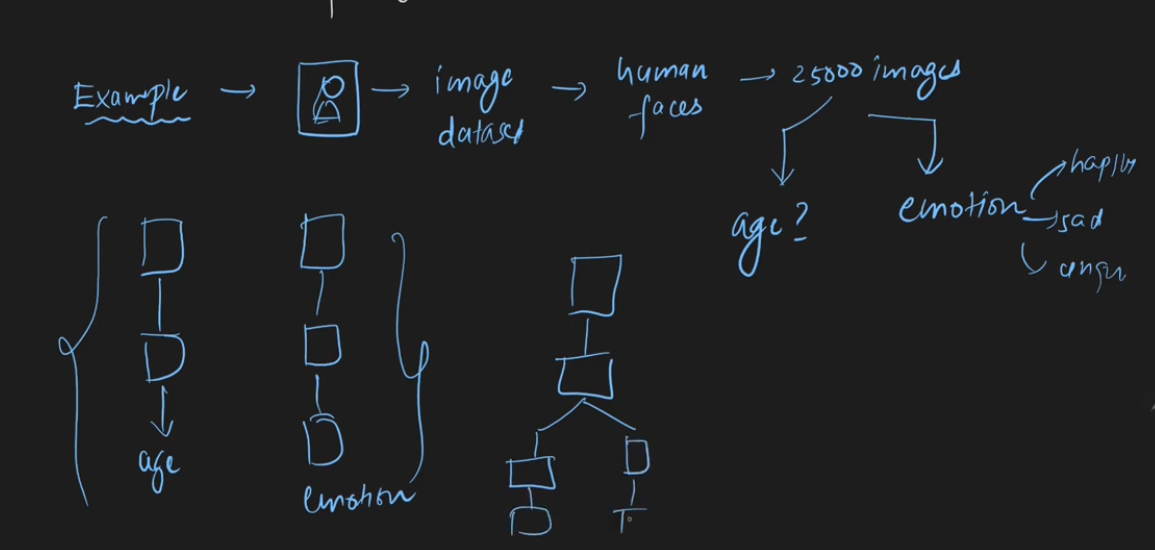 Example
image
dataset
human
faces
25000 images
age?
emotion
happy
sad
anger
age
emotion